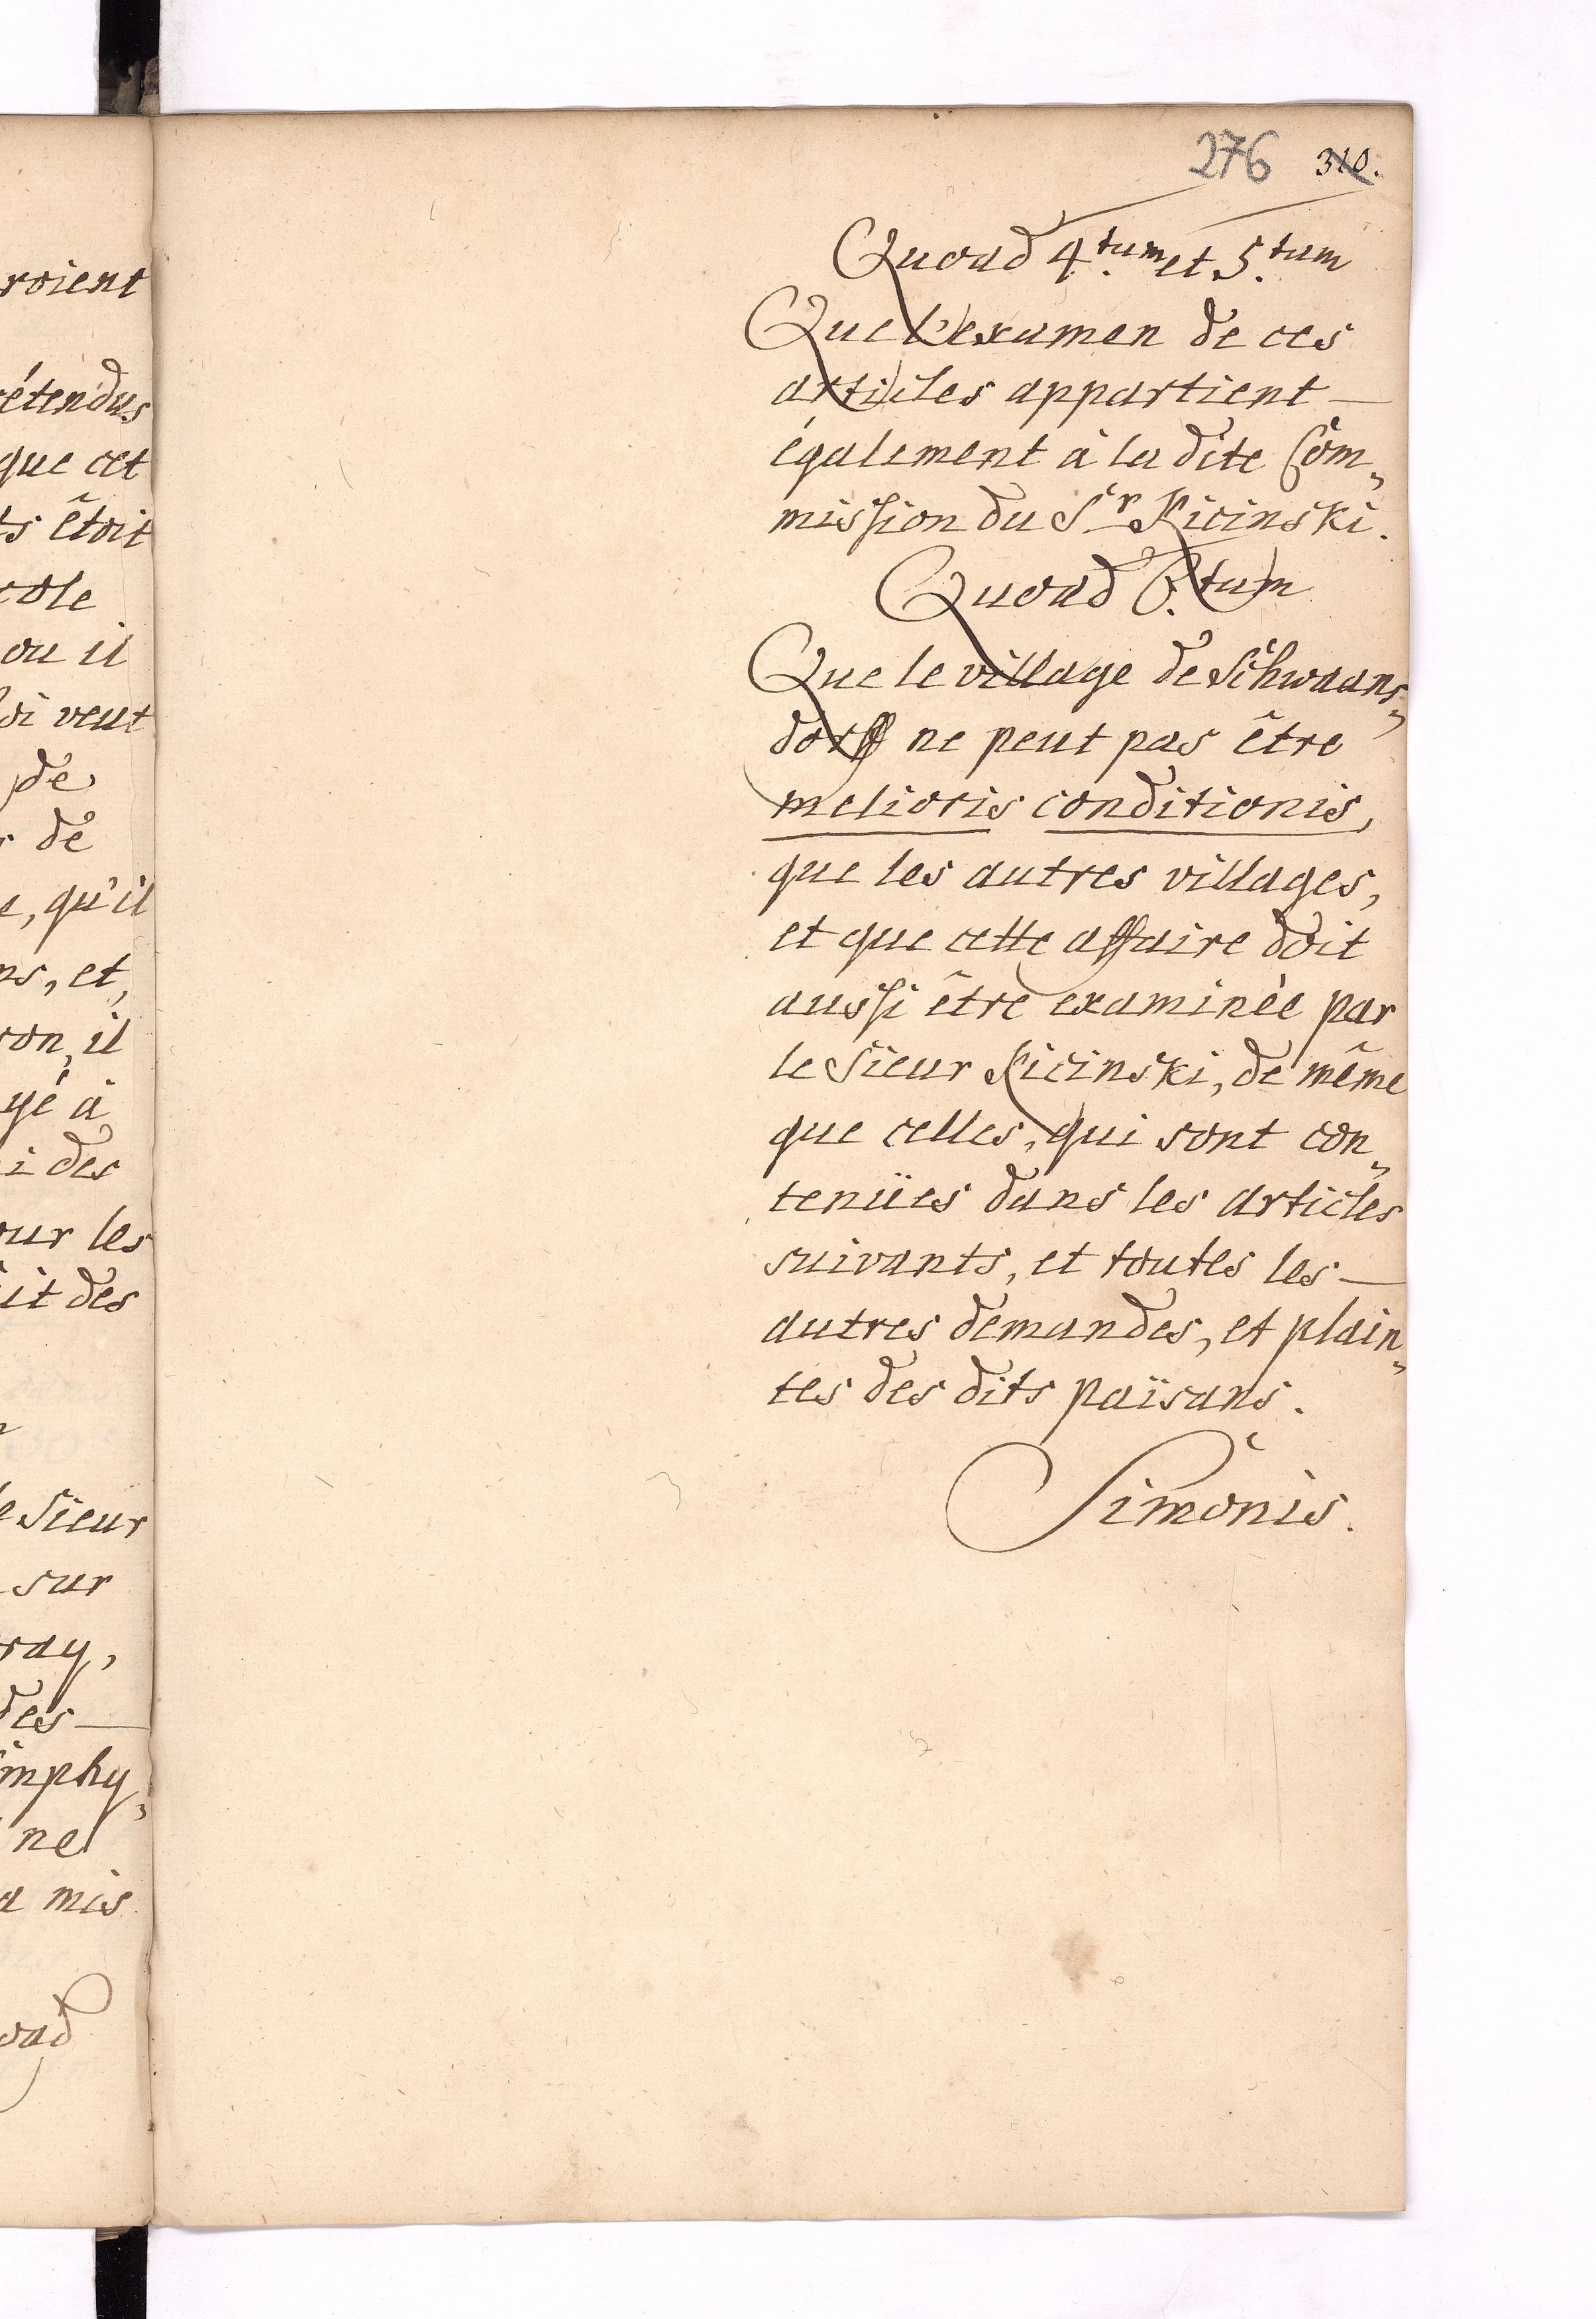 roient
étendus
que cet
ts étoit
cole
ou il
oi veut
de
de
e, qu'il
ns, et,
son, il
yé à
i des
our les
it des
e Sieur
sur
ray,
des
imphy„
ne
a mis
oad
276 310.
Quoad 4.tum et 5.tum
Que l'examen de ces
articles appartient —
également à la dite Com„
mission du Sr. Kicinski.
Quoad 6.tum
Que le village de Schwaans„
dorff ne peut pas être
melioris conditionis,
que les autres villages,
et que cette affaire doit
aussi être examinée par
le Sieur Kicinski, de même
que celles, qui sont con„
tenües dans les articles
suivants, et toutes les —
autres demandes, et plain„
tes des dits païsans.
Simonis.